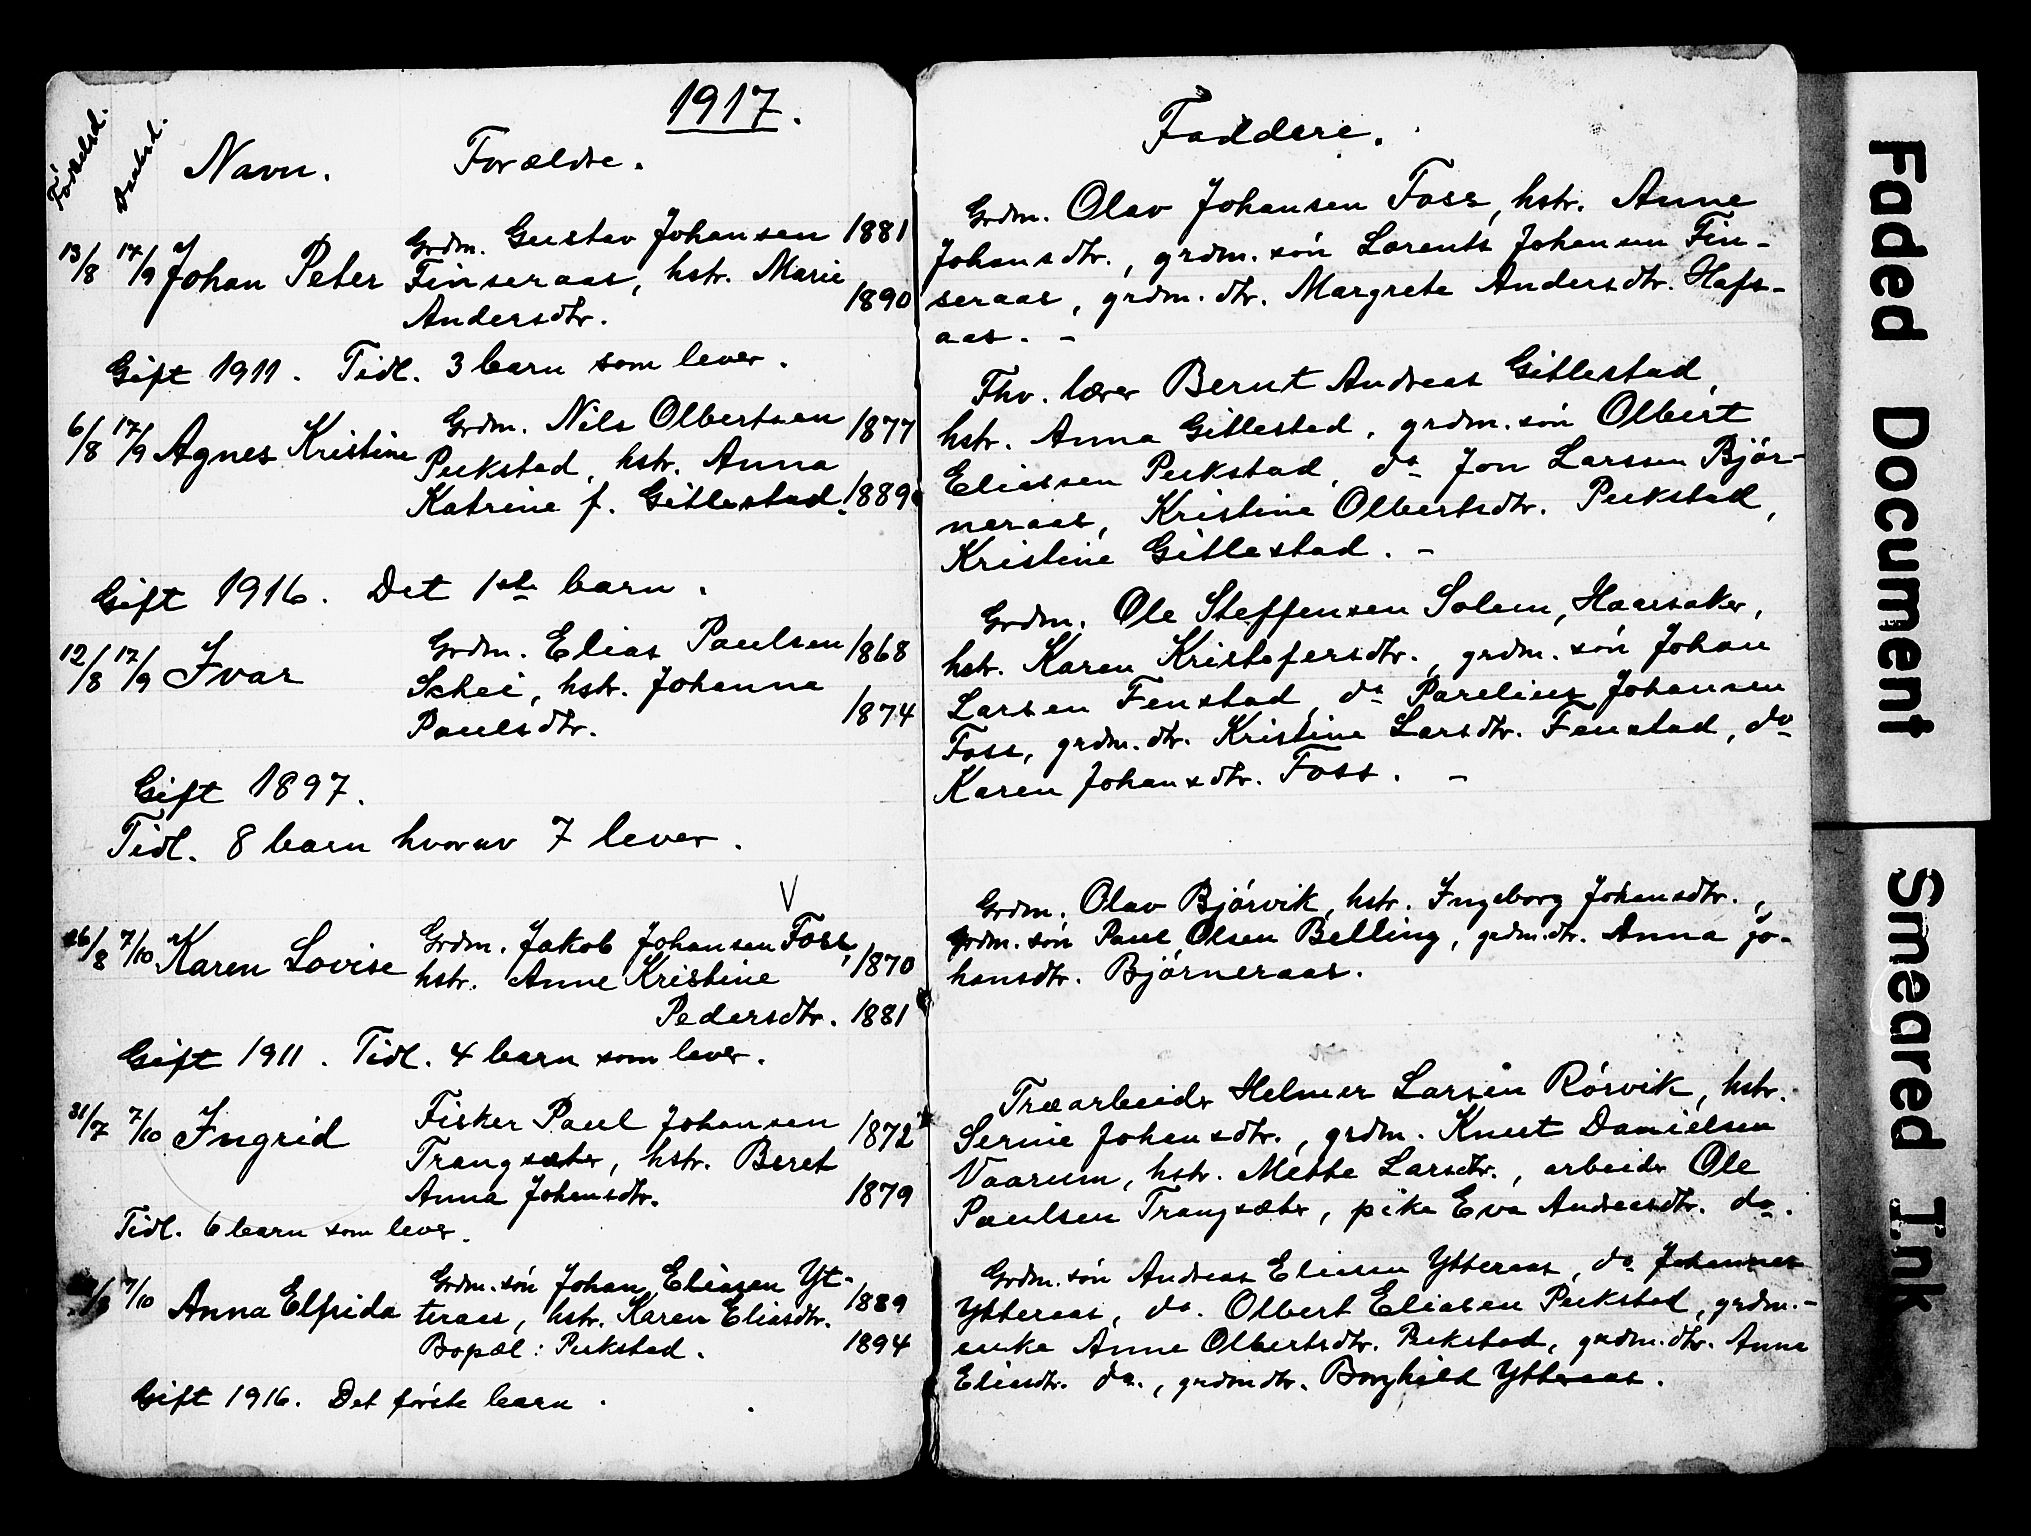 1917.
Fødselsd. Daabsd. Navn. Forældre.
13/8 17/9 Johan Peter Grdm. Gustav Johansen 1881
Finseraas, hstr. Marie
Andersdtr. 1890
Gift 1911. Tidl. 3 barn som lever.
6/8 17/9 Agnes Kristine Grdm. Nils Olbertsen 1877
Pukstad, hstr. Anna
Katrine f. Gillestad. 1889
Gift 1916. Det 1ste barn.
12/8 17/9 Ivar Grdm. Elias Paulsen 1868
Schei, hstr. Johanna
Paulsdtr. 1874
Gift 1897.
Tidl. 8 barn hvorav 7 lever.
V
26/8 7/10 Karen Lovise Grdm. Jakob Johansen Foss, 1870
hstr. Anne Kristine
Pedersdtr. 1881
Gift 1911. Tidl. 4 barn som lever.
31/7 7/10 Ingrid Fisker Paul Johansen 1872
Trangsæter, hstr. Beret
Anna Johansdtr. 1879
Tidl. 6 barn som lever.
7/10 Anna Elfrida Grdm. søn Johan Eliasen Yt-
teraas, hstr. Karen Eliasdtr. 1889
Bopæl: Pukstad. 1894
Gift 1916. Det første barn.
Faddere.
Grdm. Olav Johansen Foss, hstr. Anne
Johansdtr., grdm. søn Lorents Johansen Fin-
seraas, grdm. dtr. Margrete Andersdtr. Hafs-
aas. -
Fhv. lærer Bernt Andreas Gillestad,
hstr. Anna Gillestad, grdm. søn Olbert
Eliassen Pukstad, do Jon Larssen Bjør-
neraas, Kristine Olbertsdtr. Pukstad,
Kristine Gillestad. -
Grdm. Ole Steffensen Solem, Haarsaker,
hstr. Karen Kristofersdtr., grdm. søn Johan
Larsen Fenstad, do Parelius Johansen
Foss, grdm. dtr. Kristine Larsdtr. Fenstad, do
Karen Johansdtr. Foss. -
Grdm. Olav Bjørvik, hstr. Ingeborg Johansdtr.,
grdm. søn Paul Olsen Belling, grdm. dtr. Anna Jo-
hansdtr. Bjørneraas.
Træarbeider Helmer Larsen Rørvik, hstr.
Serine Johansdtr., grdm. Knut Danielsen
Vaarum, hstr. Mette Larsdtr., arbeider Ole
Paulsen Trangsæter, pike Eva Andreasdtr. do.
Grdm. søn Andreas Eliasen Ytteraas, do Johannes
Ytteraas, do. Olbert Eliasen Pukstad, grdm.-
enke Anne Olbertsdtr. Pukstad, grdm. dtr. Anne
Eliasdtr. do., grdm dtr. Borghild Ytteraas.
Faded Document
Smeared Ink